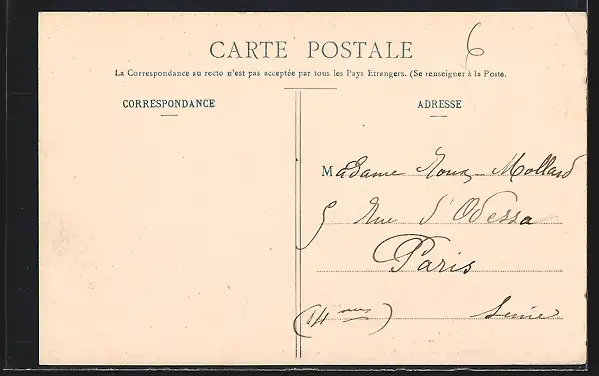 6
CARTE POSTALE
La Correspondance au recto n'est pas acceptée par tous les Pays Etrangers. (Se renseigner à la Poste.
CORRESPONDANCE
ADRESSE
Madame Roux-Mollard
5 Rue d'Odessa
Paris
(14 me) Seine